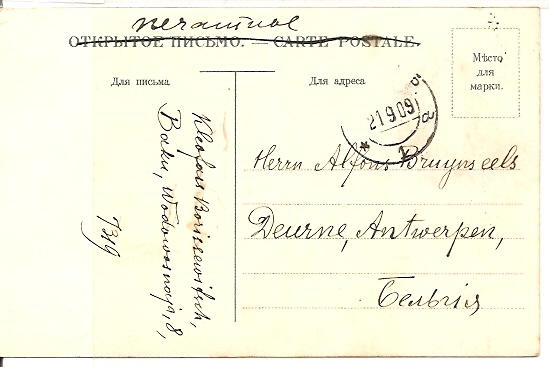 печатное
ОТКРЫТОЕ ПИСЬМО. — CARTE POSTALE.
Для письма
Для адреса
Мѣсто
для
марки.
21 9 09
Herrn Alfons Bruynseels
Deurne, Antwerpen,
Бельгія
Kleofas Borissewitsch,
Baku, Wodowosnaja, 8,